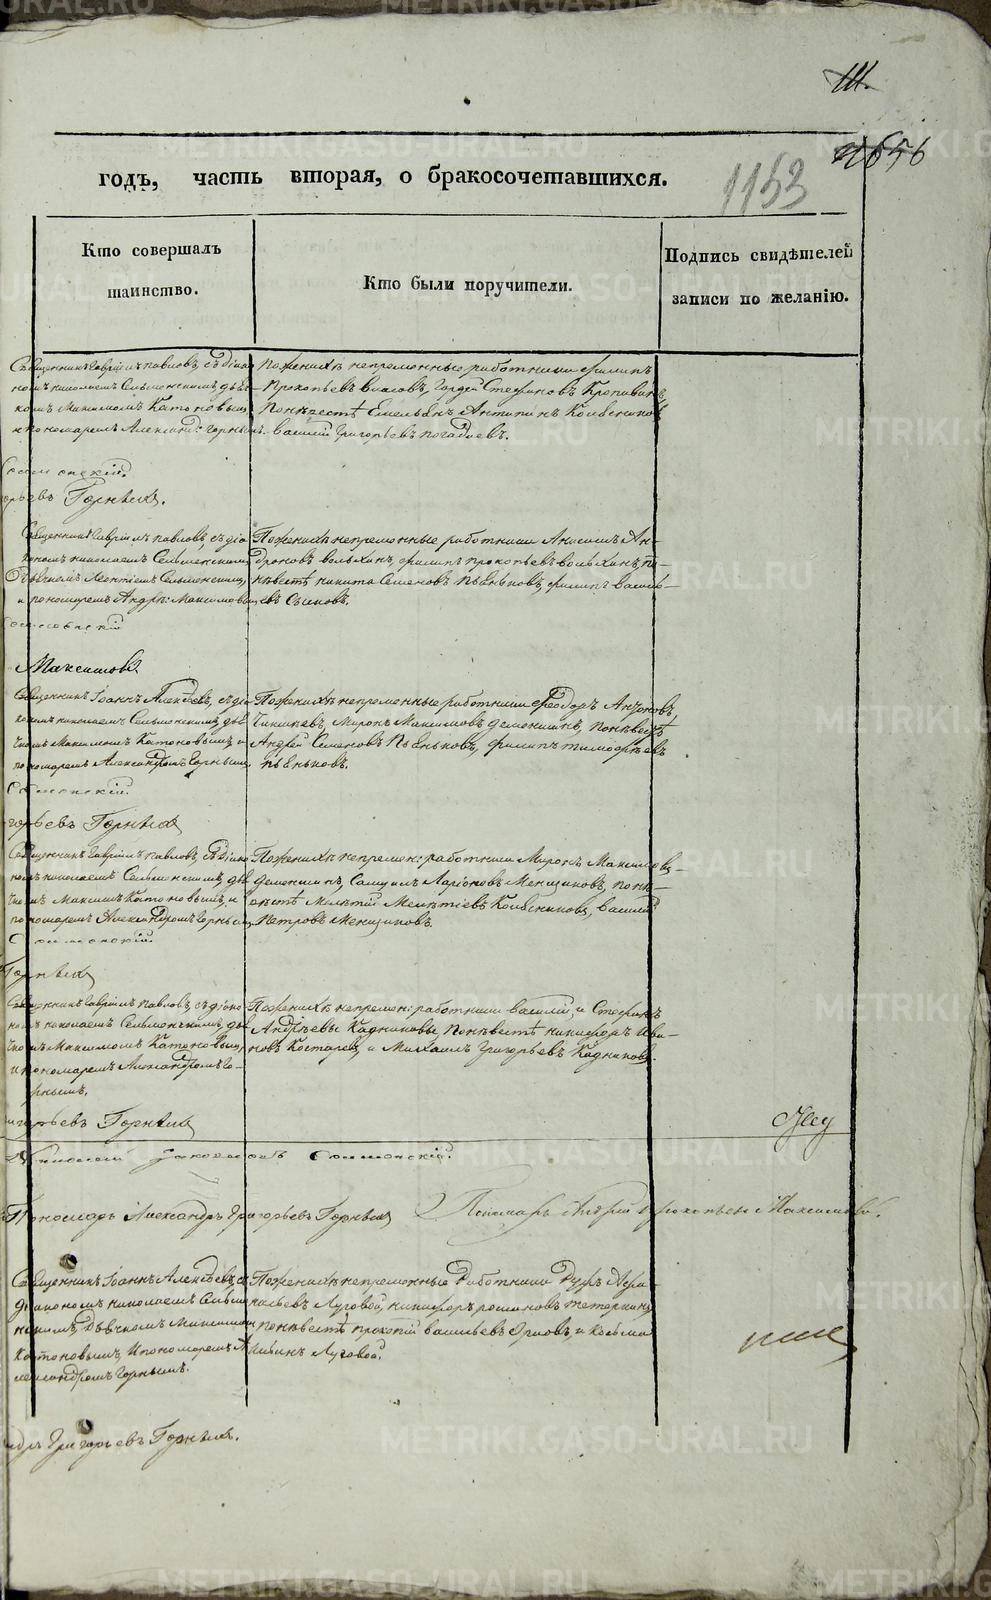 Ш.
656
1153
годъ, часть вторая, о бракосочетавшихся.
Кто совершалъ таинство.
Кто были поручители.
Подпись свидѣтелей записи по желанію.
Священникъ Гавріилъ Павловъ, съ діако
номъ Николаемъ Сельменскимъ, дья
комъ Максимомъ Катоновымъ,
и пономаремъ Александ: Горнымъ.
По женихѣ непременные работники Филипъ
Прокопьевъ Власовъ, Гордей Стефановъ
По невѣстѣ Емельянъ Антипинъ Колѣсников
Василій Григорьевъ Погадаевъ.
Горныхъ.
Священникъ Гавріилъ Павловъ, съ діа
кономъ Николаемъ Сельменскимъ,
Дьячкомъ Леонтіемъ Сельменскимъ,
и пономаремъ Андр: Максимовы
По женихѣ непременные работники Анисимъ Ан-
дроновъ Волхинъ, Филипъ Прокопьевъ Волхинъ, по не-
вѣстѣ Никита Семеновъ Пьянковъ, Филипъ Василь-
евъ Сысковъ.
Максимовъ
Священникъ Іоаннъ Алексѣевъ, съ діа
кономъ Николаемъ Сельменскимъ, дья
чкомъ Максимомъ Катоновымъ, и
пономаремъ Александромъ Горнымъ,
По женихѣ непременные работники Феодоръ Антонов
Чикишевъ, Миронъ Максимовъ Деменшинъ, по невѣстѣ
Андрей Семеновъ Пьянковъ, Филипъ Тимофѣевъ
Пьянковъ.
горьевъ Горныхъ
Священникъ Гавріилъ Павловъ, съ діако
номъ Николаемъ Сельменскимъ, дья
чкомъ Максимъ Катоновымъ, и
пономаремъ Александромъ Горнымъ,
По женихѣ непремен: работники Миронъ Максимовъ
Деменшинъ, Самуилъ Ларіоновъ Менщиковъ, по не-
вѣстѣ Мелетій Мелѣтіевъ Колѣсниковъ, Василій
Петровъ Менщиковъ.
Горныхъ
Священникъ Гавріилъ Павловъ, съ діако
номъ Николаемъ Сельменскимъ, дья
чкомъ Максимомъ Катоновым,
и пономаремъ Александромъ Го-
рнымъ.
По женихѣ непремен: работники Василій, и Стефанъ
Андрѣевы Кадниковы По невѣстѣ Никифоръ Ива-
новъ Костаревъ, и Михаилъ Григорьевъ Кадников.
горьевъ Горныхъ
Пономарь Александръ Григорьевъ Горныхъ
Пономарь Андрей Прокопьевъ Максимовъ.
Священникъ Іоаннъ Алексѣевъ, съ
діакономъ Николаемъ Сельме
нскимъ, Дьячкомъ Максимом
Катоновымъ, и пономаремъ А
лександромъ Горнымъ.
По женихѣ непременные Работники
Луговой, Никифоръ Романовъ Тетеркинъ,
по невѣстѣ Прокопій Васильевъ Орловъ, и Косьма
Ильинъ Луговой.
ндръ Григорьевъ Горныхъ.
METRIKI.GASO-URAL.RU